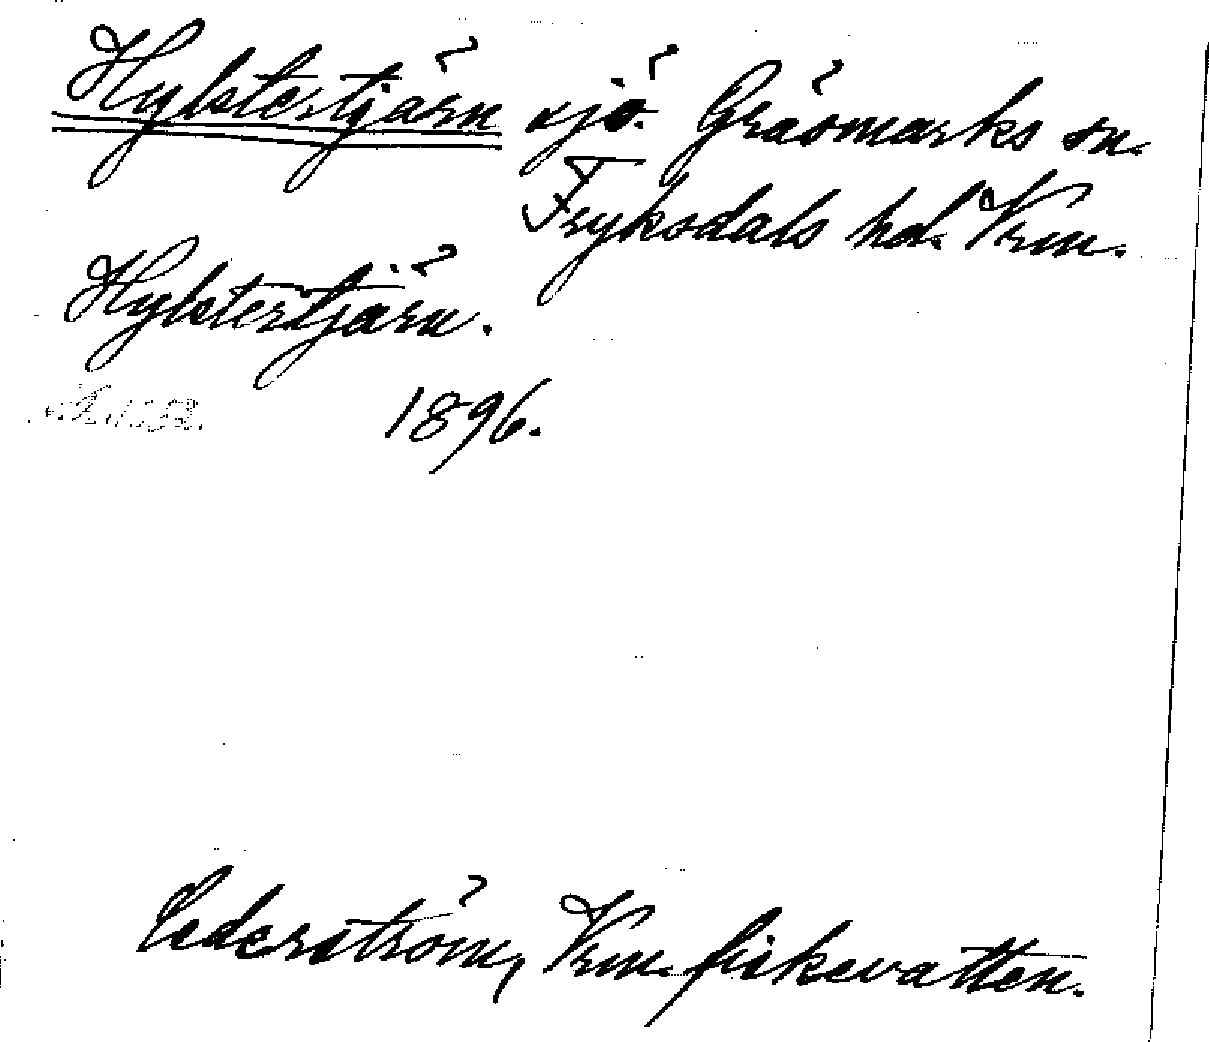 Hylstertjärn sjö. Gräsmarks sn.
Fryksdals hd. Vrm.
Hylstertjärn.
1896.
Cederström, Vrm. fiskevatten.